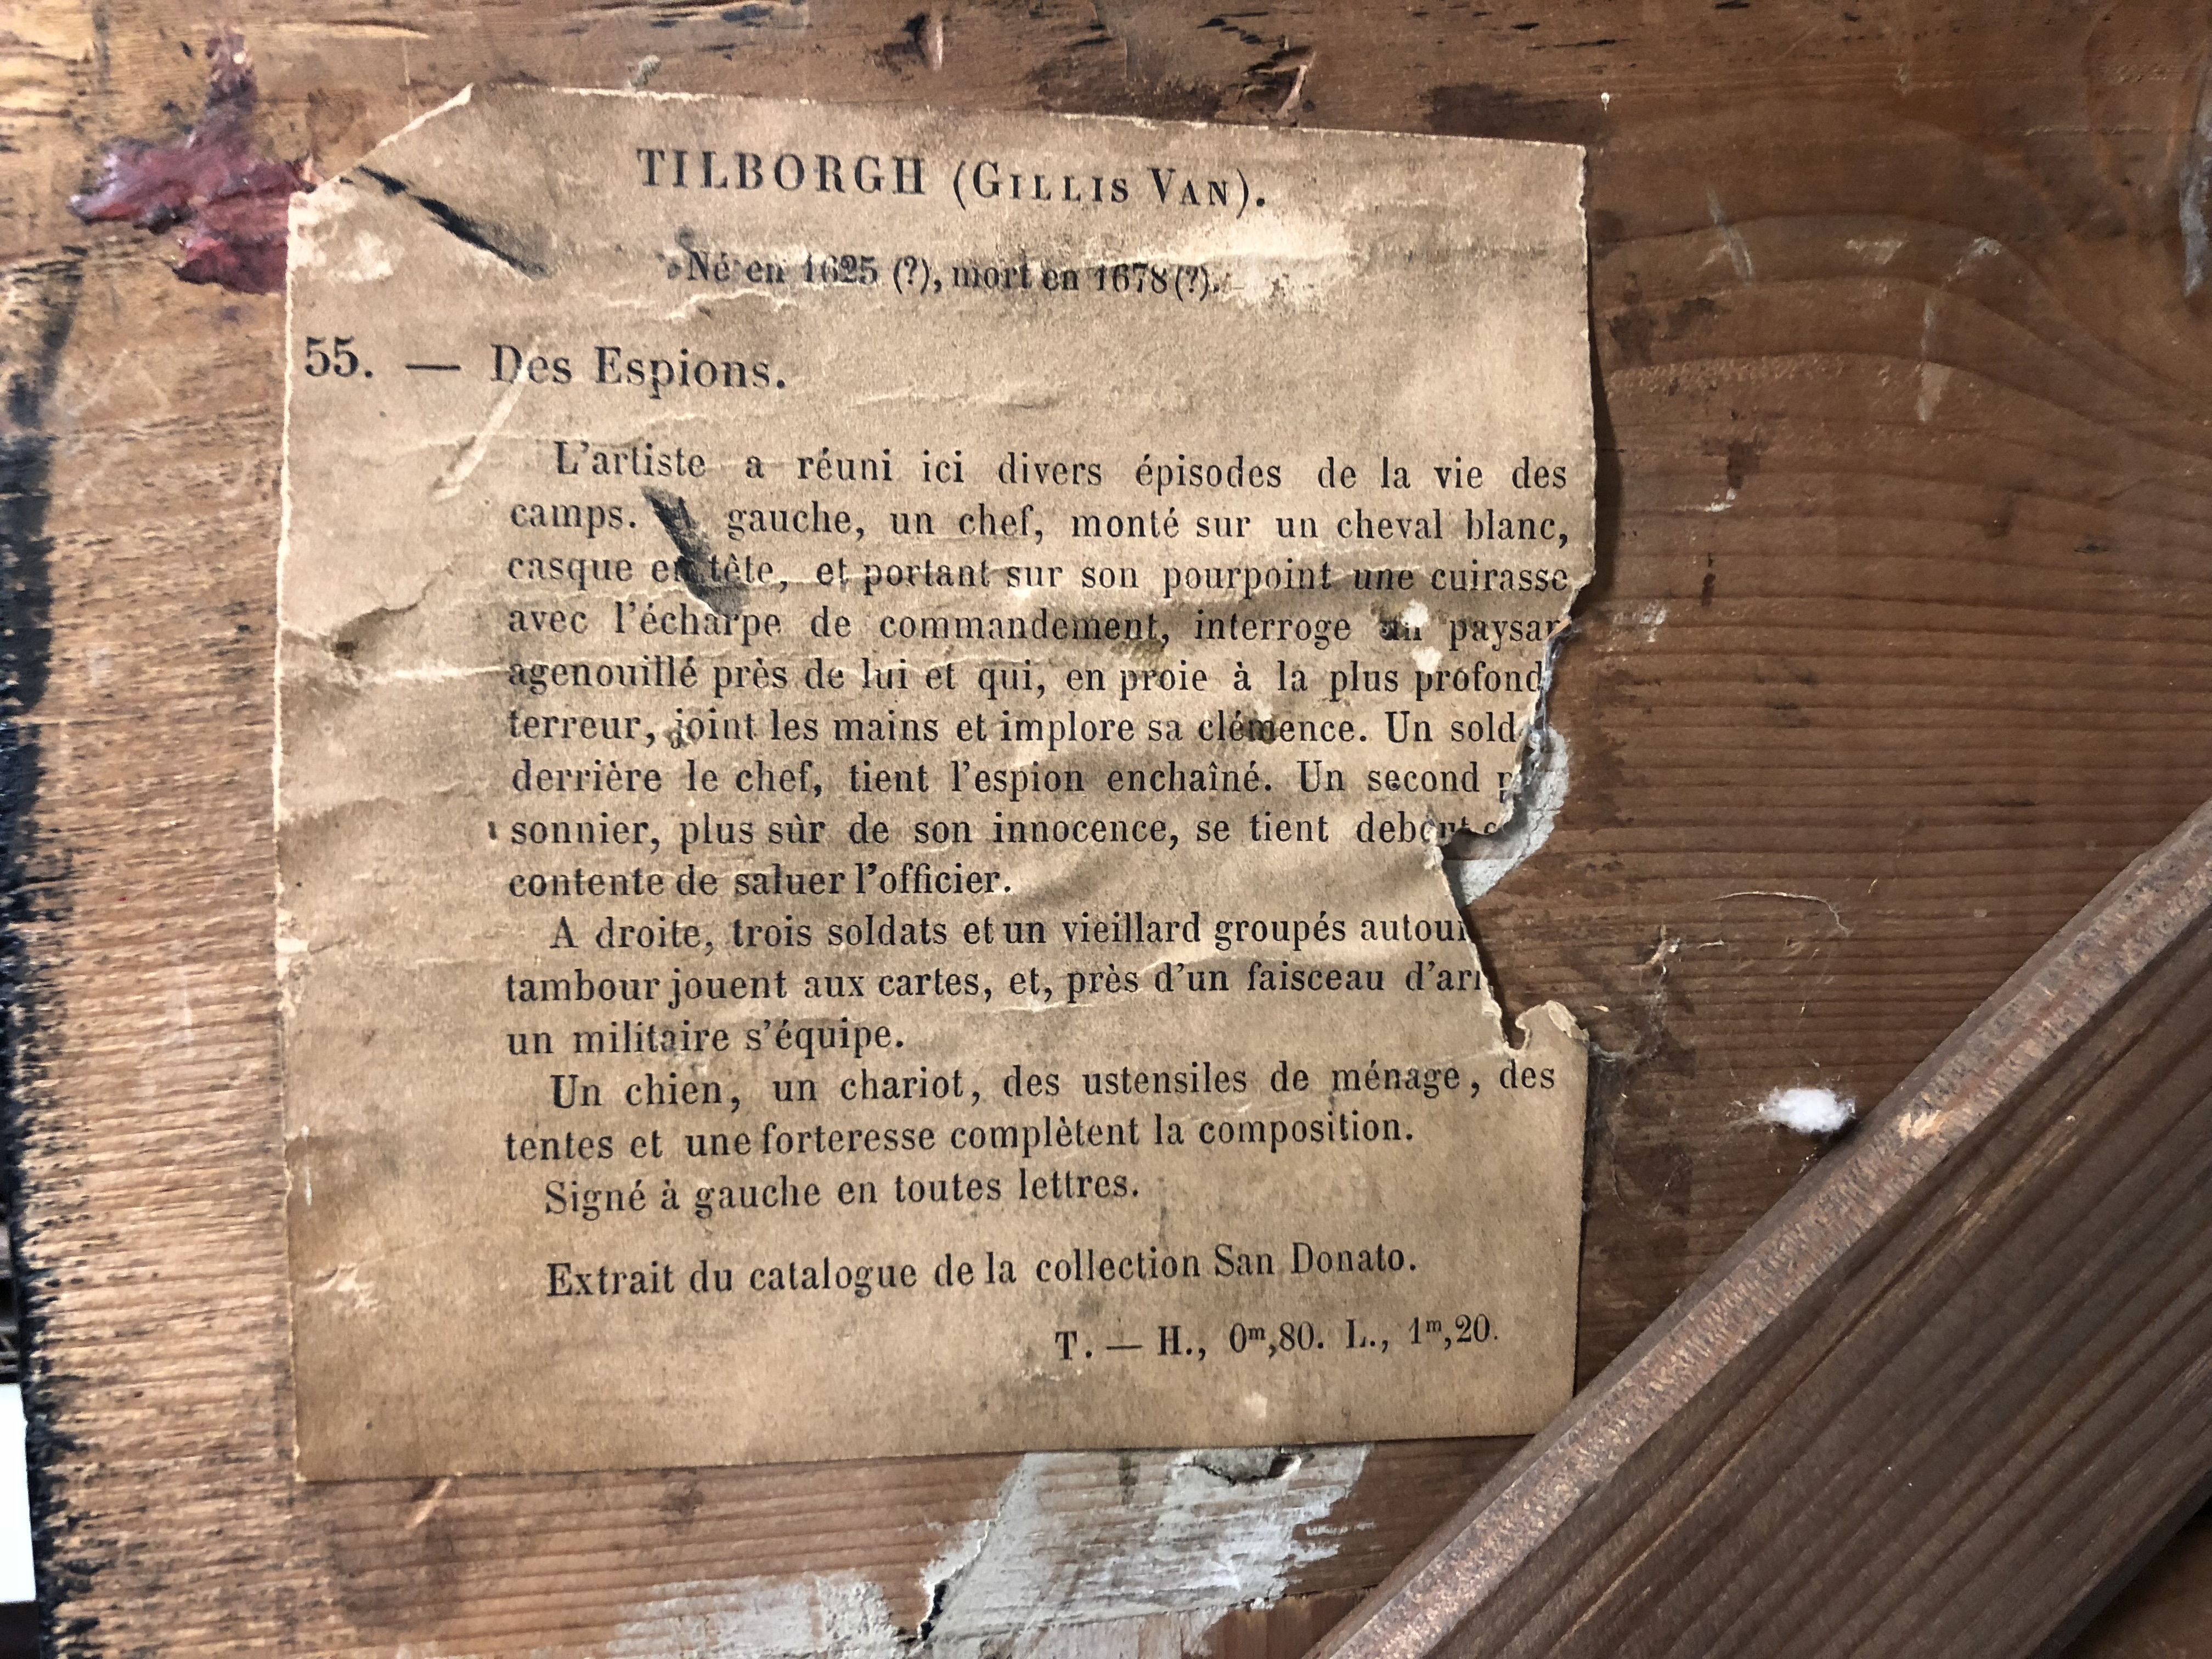 TILBORGH (GILLIS VAN).
Né en 1625 (?), mort en 1678 (?).
55. — Des Espions.
L'artiste a réuni ici divers épisodes de la vie des
camps. A gauche, un chef, monté sur un cheval blanc,
casque en tête, et portant sur son pourpoint une cuirasse
avec l'écharpe de commandement, interroge un paysan
agenouillé près de lui et qui, en proie à la plus profond
terreur, joint les mains et implore sa clémence. Un sold
derrière le chef, tient l'espion enchaîné. Un second
sonnier, plus sûr de son innocence, se tient debout
contente de saluer l'officier.
A droite, trois soldats et un vieillard groupés autour
tambour jouent aux cartes, et, près d'un faisceau
un militaire s'équipe.
Un chien, un chariot, des ustensiles de ménage, des
tentes et une forteresse complètent la composition.
Signé à gauche en toutes lettres.
Extrait du catalogue de la collection San Donato.
T. — H., 0m,80. L., 1m,20.